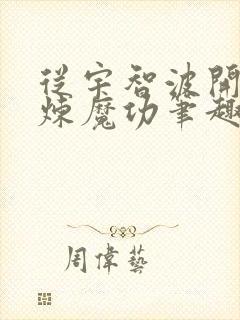 從宇智波開
煉魔功筆趣
周偉藝